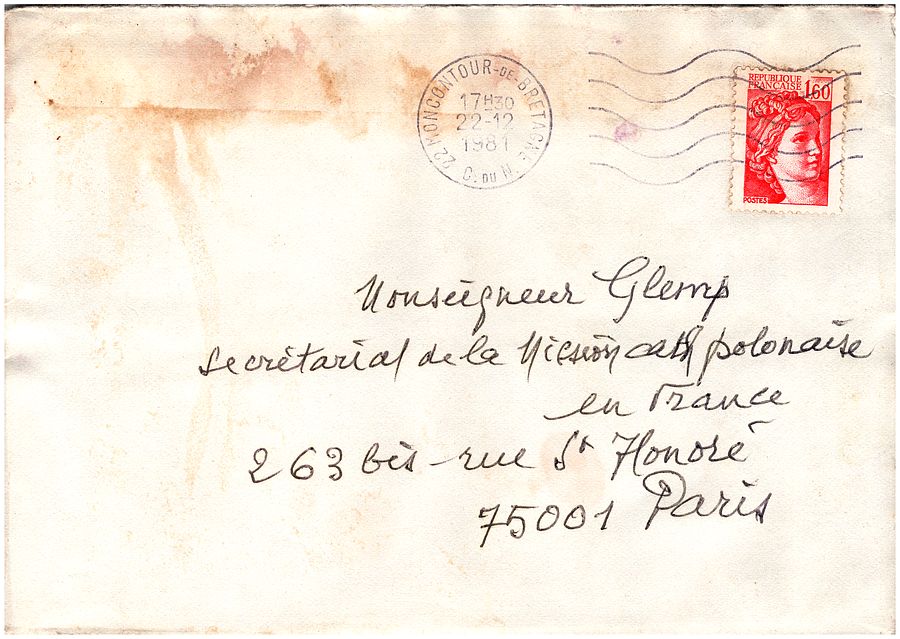 22 MONCONTOUR-DE-BRETAGNE
17H30
22-12
1981
C. DU N.
REPUBLIQUE
FRANÇAISE
1,60
POSTES
Monseigneur Glemp
secrétariat de la Mission cath polonaise
en France
263 bis rue St Honoré
75001 Paris